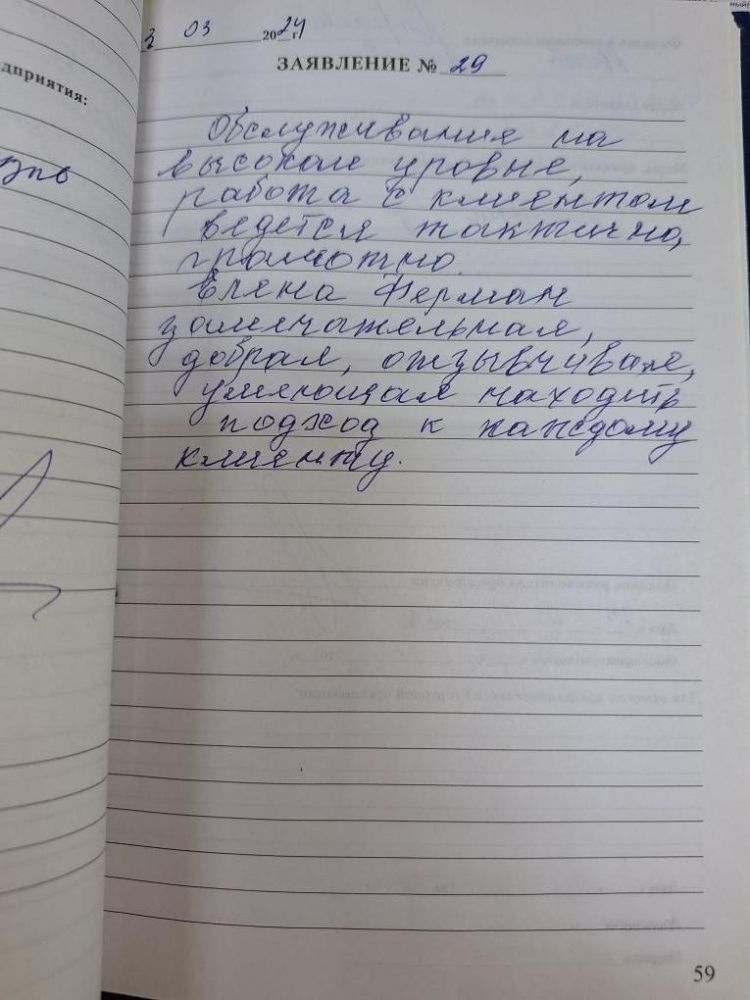 3 03 2024 г.
ЗАЯВЛЕНИЕ № 29
Обслуживания на
высоком уровне,
работа с клиентом
ведется тактично,
грамотно.
Елена Ферман
замечательная,
добрая, отзывчивая,
умеющая находить
подход к каждому
клиенту.
59
дприятия: